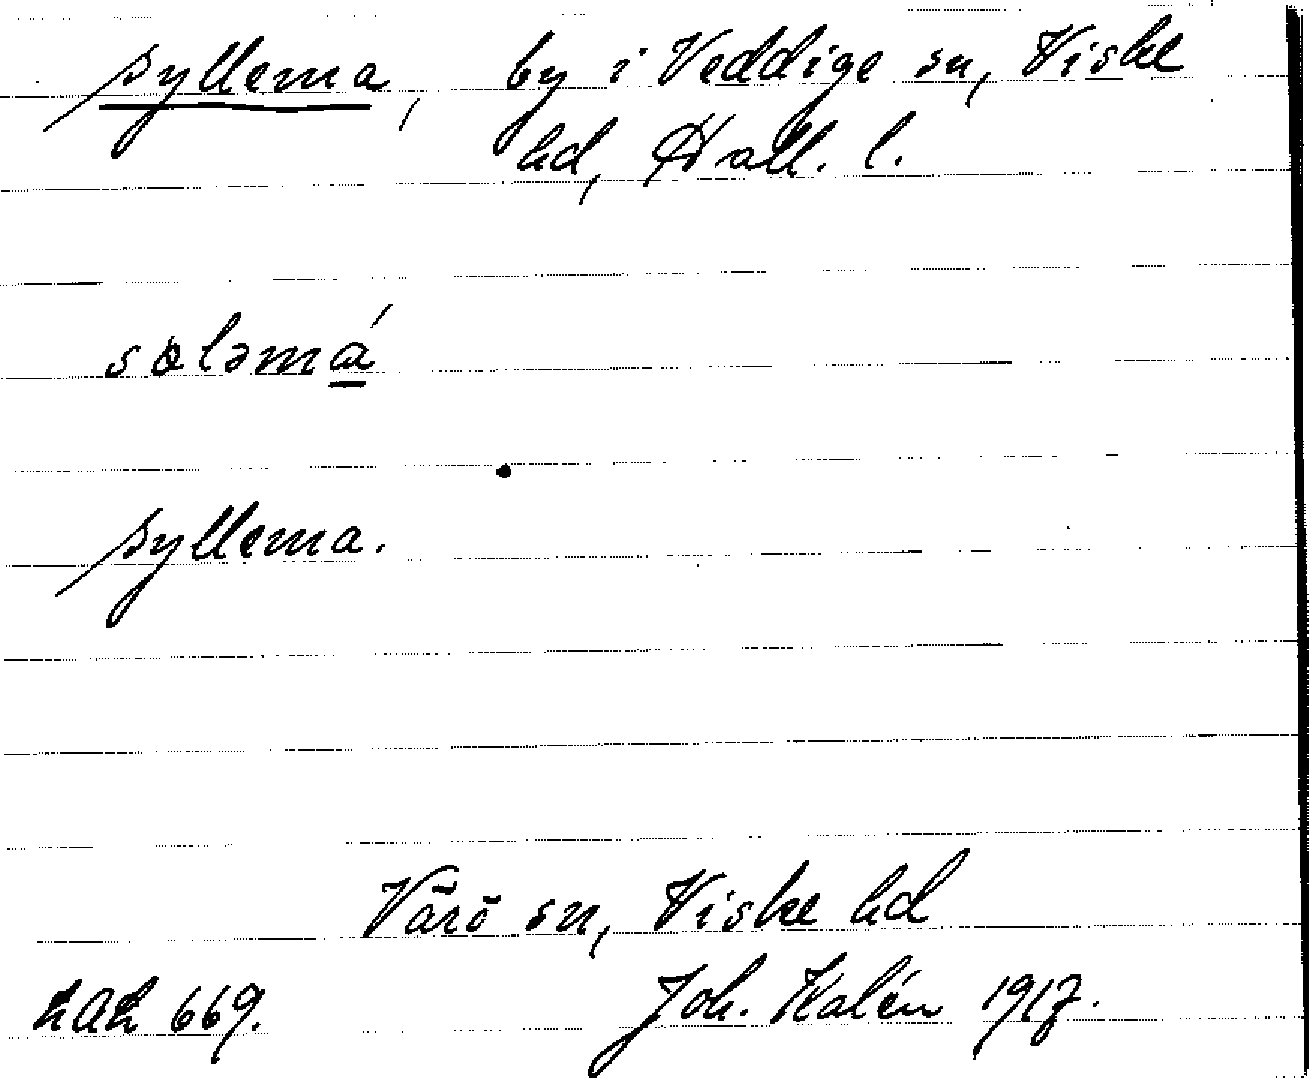 Syllema, by i Veddige sn, Viske
hd, Hall. l.
søləmá
Syllema.
Värö sn, Viske hd
669. Joh. Kalén 1917.